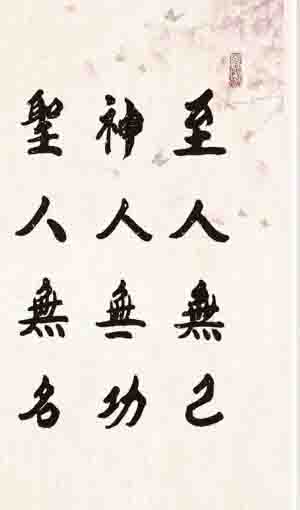 至人無己
神人無功
聖人無名